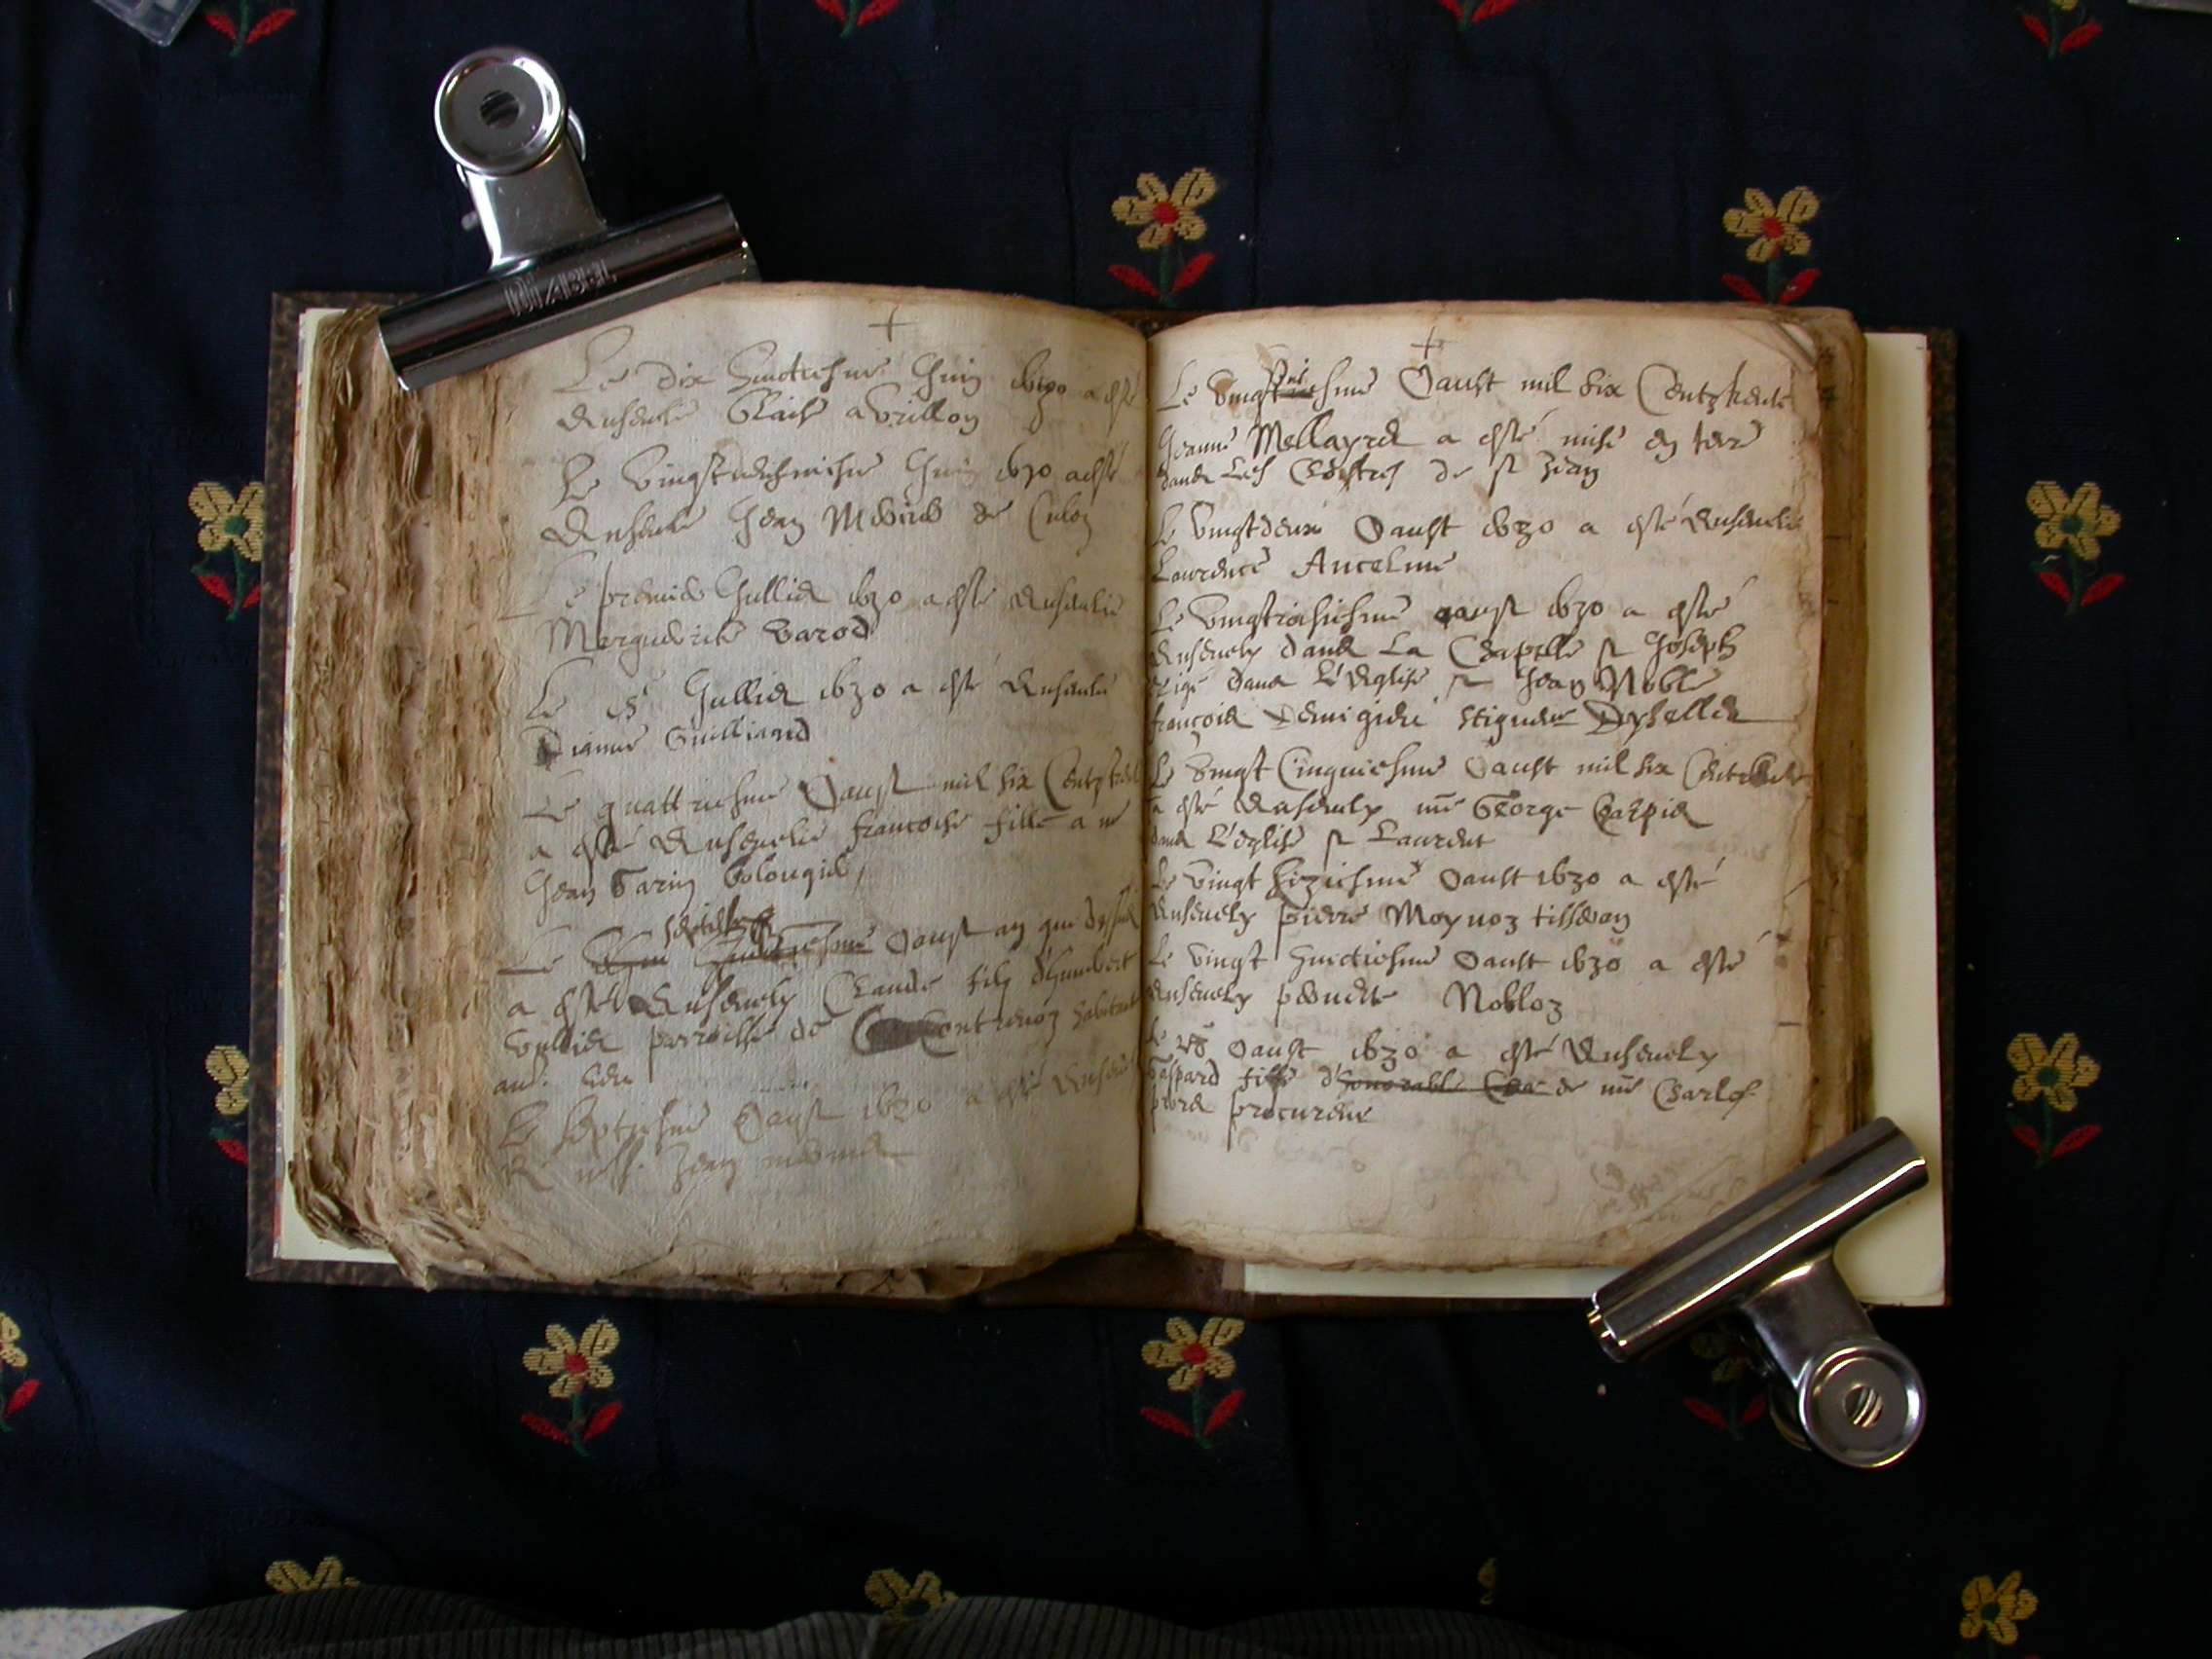 DIABEL
Le dix huictiesme Juin 1630 a esté
Ensevelie Claise aVrillon
Le Vingt Juin 1630 a esté
Ensevelie Jean de Culoz
Le premier Jullier 1630 a esté Ensevelie
Marguerite Varod
Le Jullier 1630 a esté Ensevelie
Dianne Guilliand
Le quattriesme Daust mil six Centz trente
a esté Ensevelie francoise fille a me
Jean Sarin
Le Daust an que dessus
a esté Ensevely Claude filz d'humbert
Vullier parroisse de Contrevoz habitant
aud. lieu
Le septiesme Daust 1630 a esté Enseveli
Jean
Le Vingtiesme Daust mil six Centz trente
Jeanne Mellayrer a esté mise en terre
dans les Cloistres de st Jean
Le Vingtdeux Daust 1630 a esté Ensevelie
Laurence Ancelme
Le Vingtroisiesme aaust 1630 a esté
Ensevely dans La Chapelle st Joseph
erigé dans L'Eglise st Jean Noble
françois Demigieu seigneur
Le Vingt Cinquiesme Daust mil six Centz trente
a esté Ensevely me George Carpier
dans L'eglise st Laurent
Le Vingt siziesme Daust 1630 a esté
Ensevely pierre Moynoz tisseran
Le Vingt huictiesme Daust 1630 a esté
Ensevely Nobloz
Le Daust 1630 a esté Ensevely
Gaspard d'honorable de me Charles
procureur